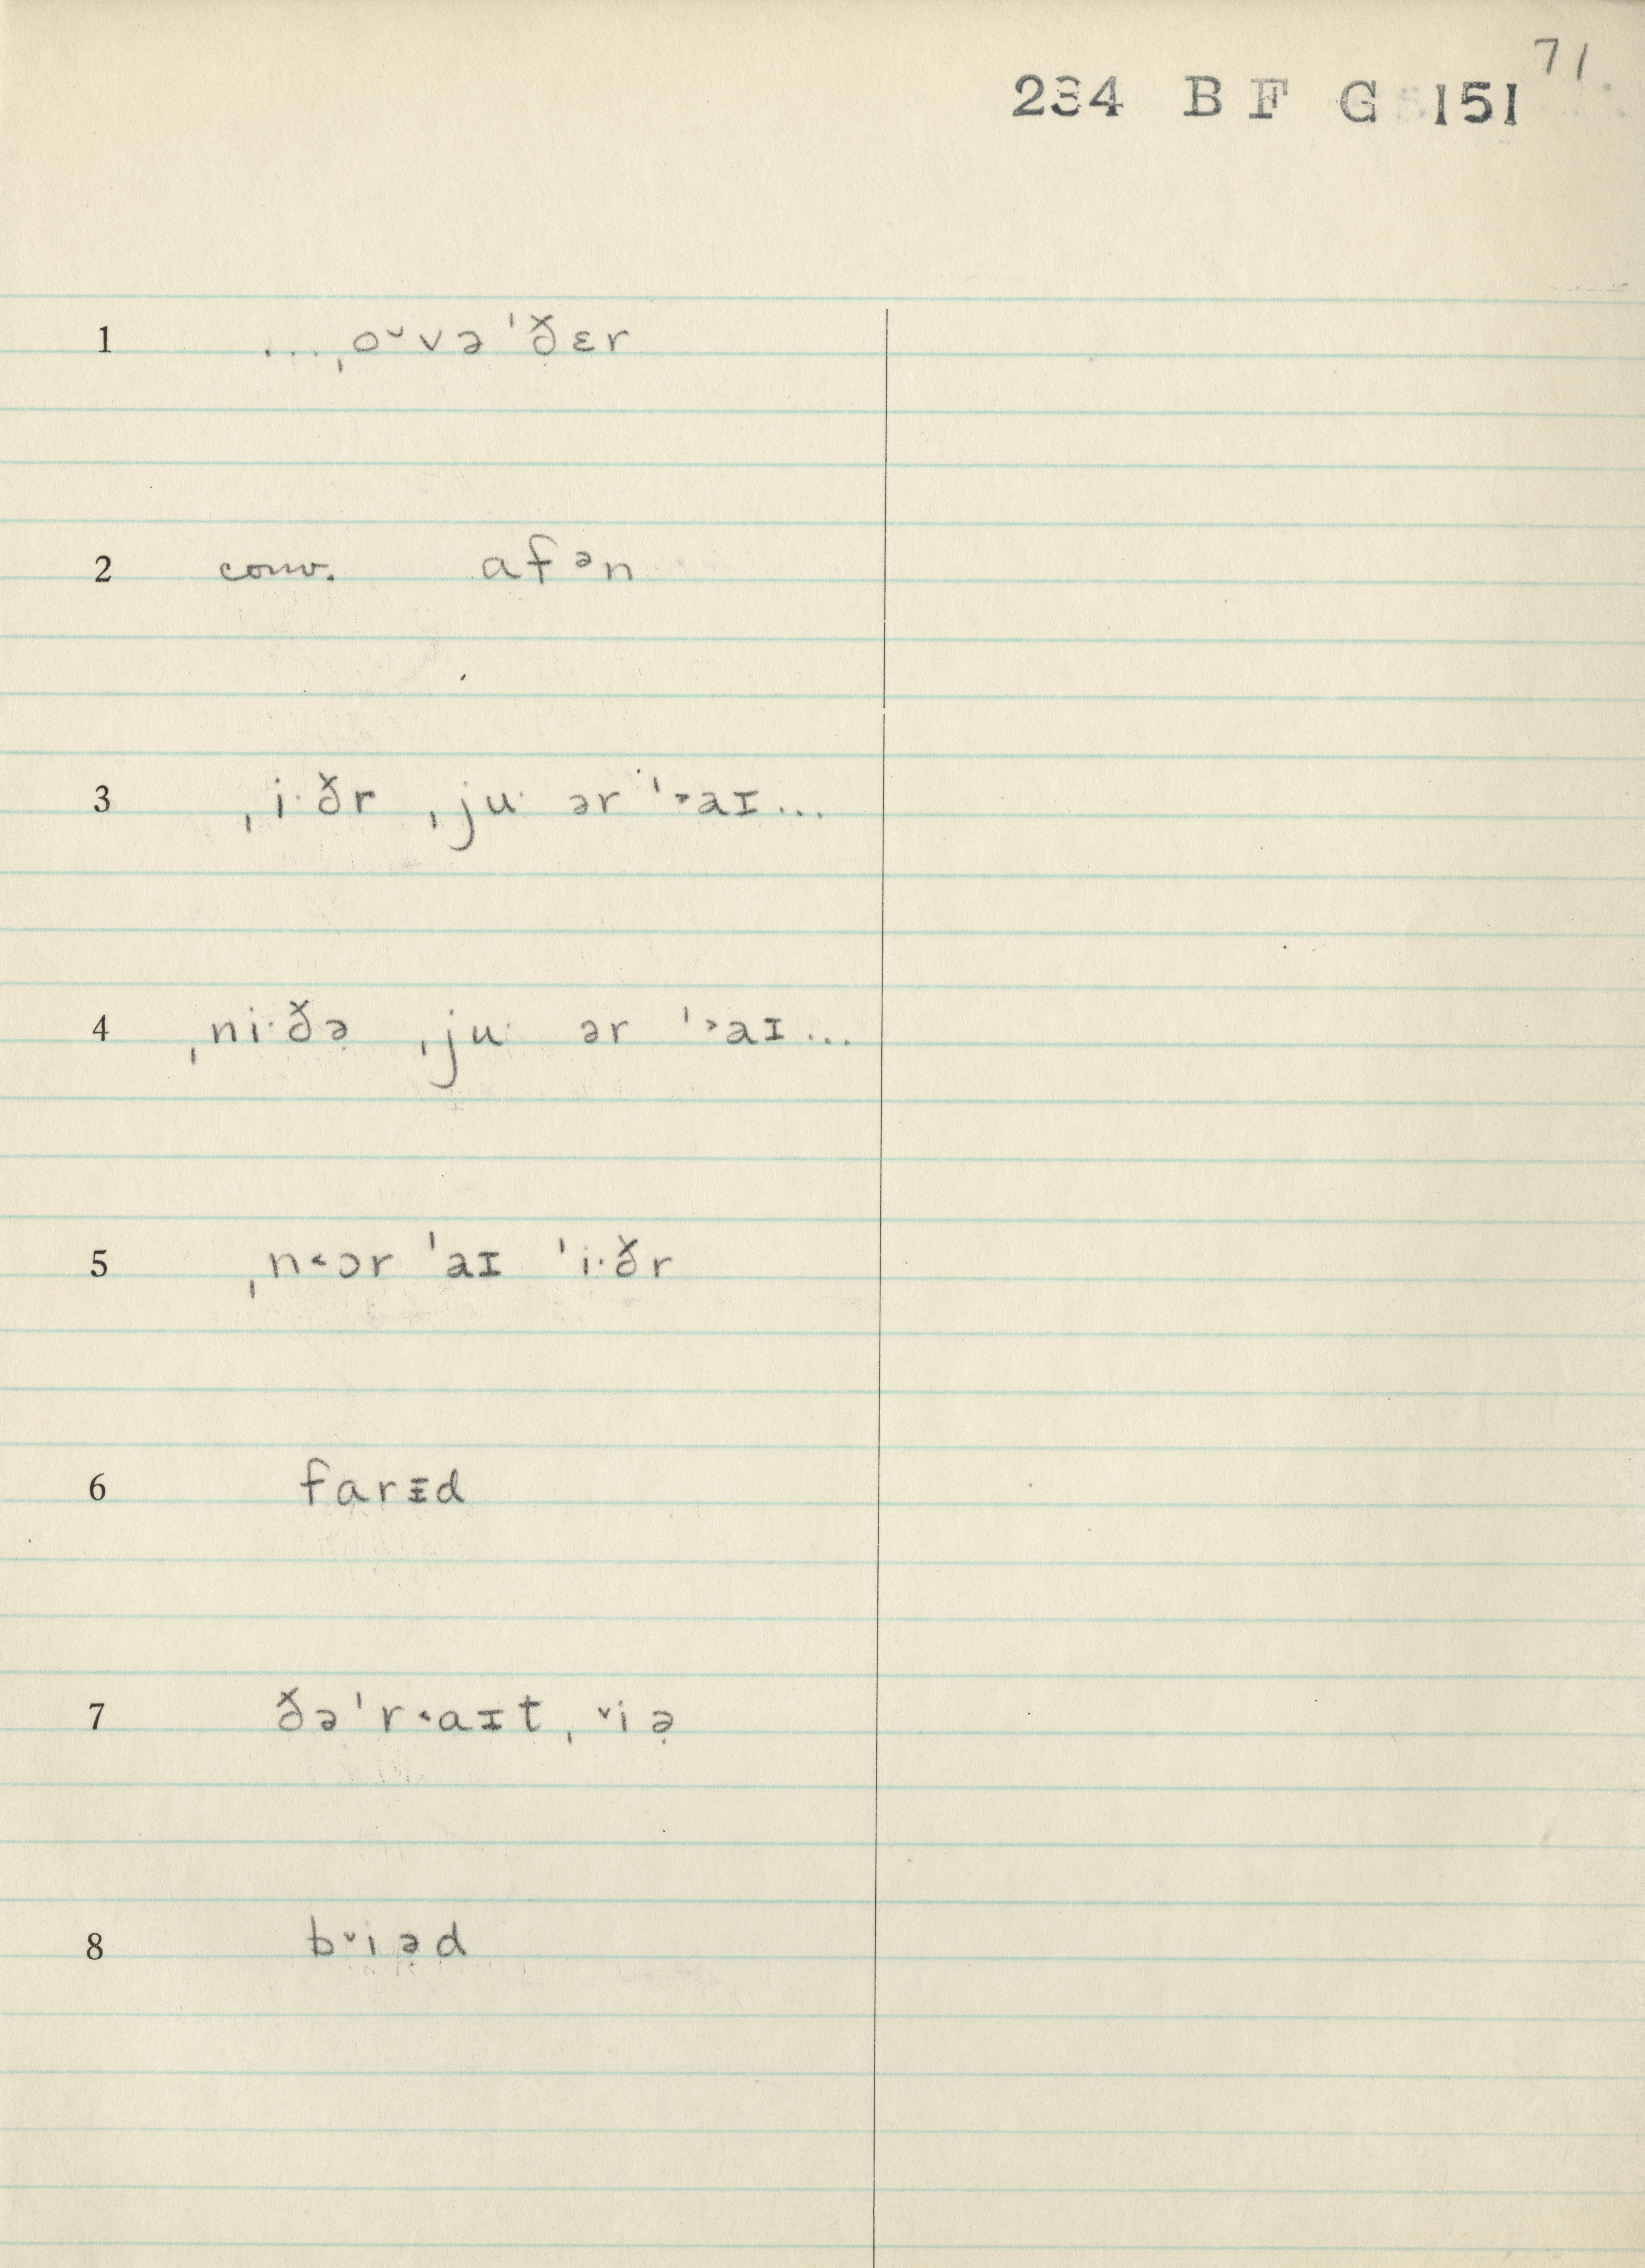 71
234 B F G 151
1 ...ˌo˘və ˈðɛr
2 conv. afᵊn
3 ˌi·ðr ˌju· ər ˈ˃aɪ...
4 ˌni·ðə̣ ˌju· ər ˈ˃aɪ...
5 ˌn˂ɔr ˈaɪ ˈi·ðr
6 farᵻd
7 ðəˈr˂aɪt ˌˇiə̣
8 bˇiə̣d